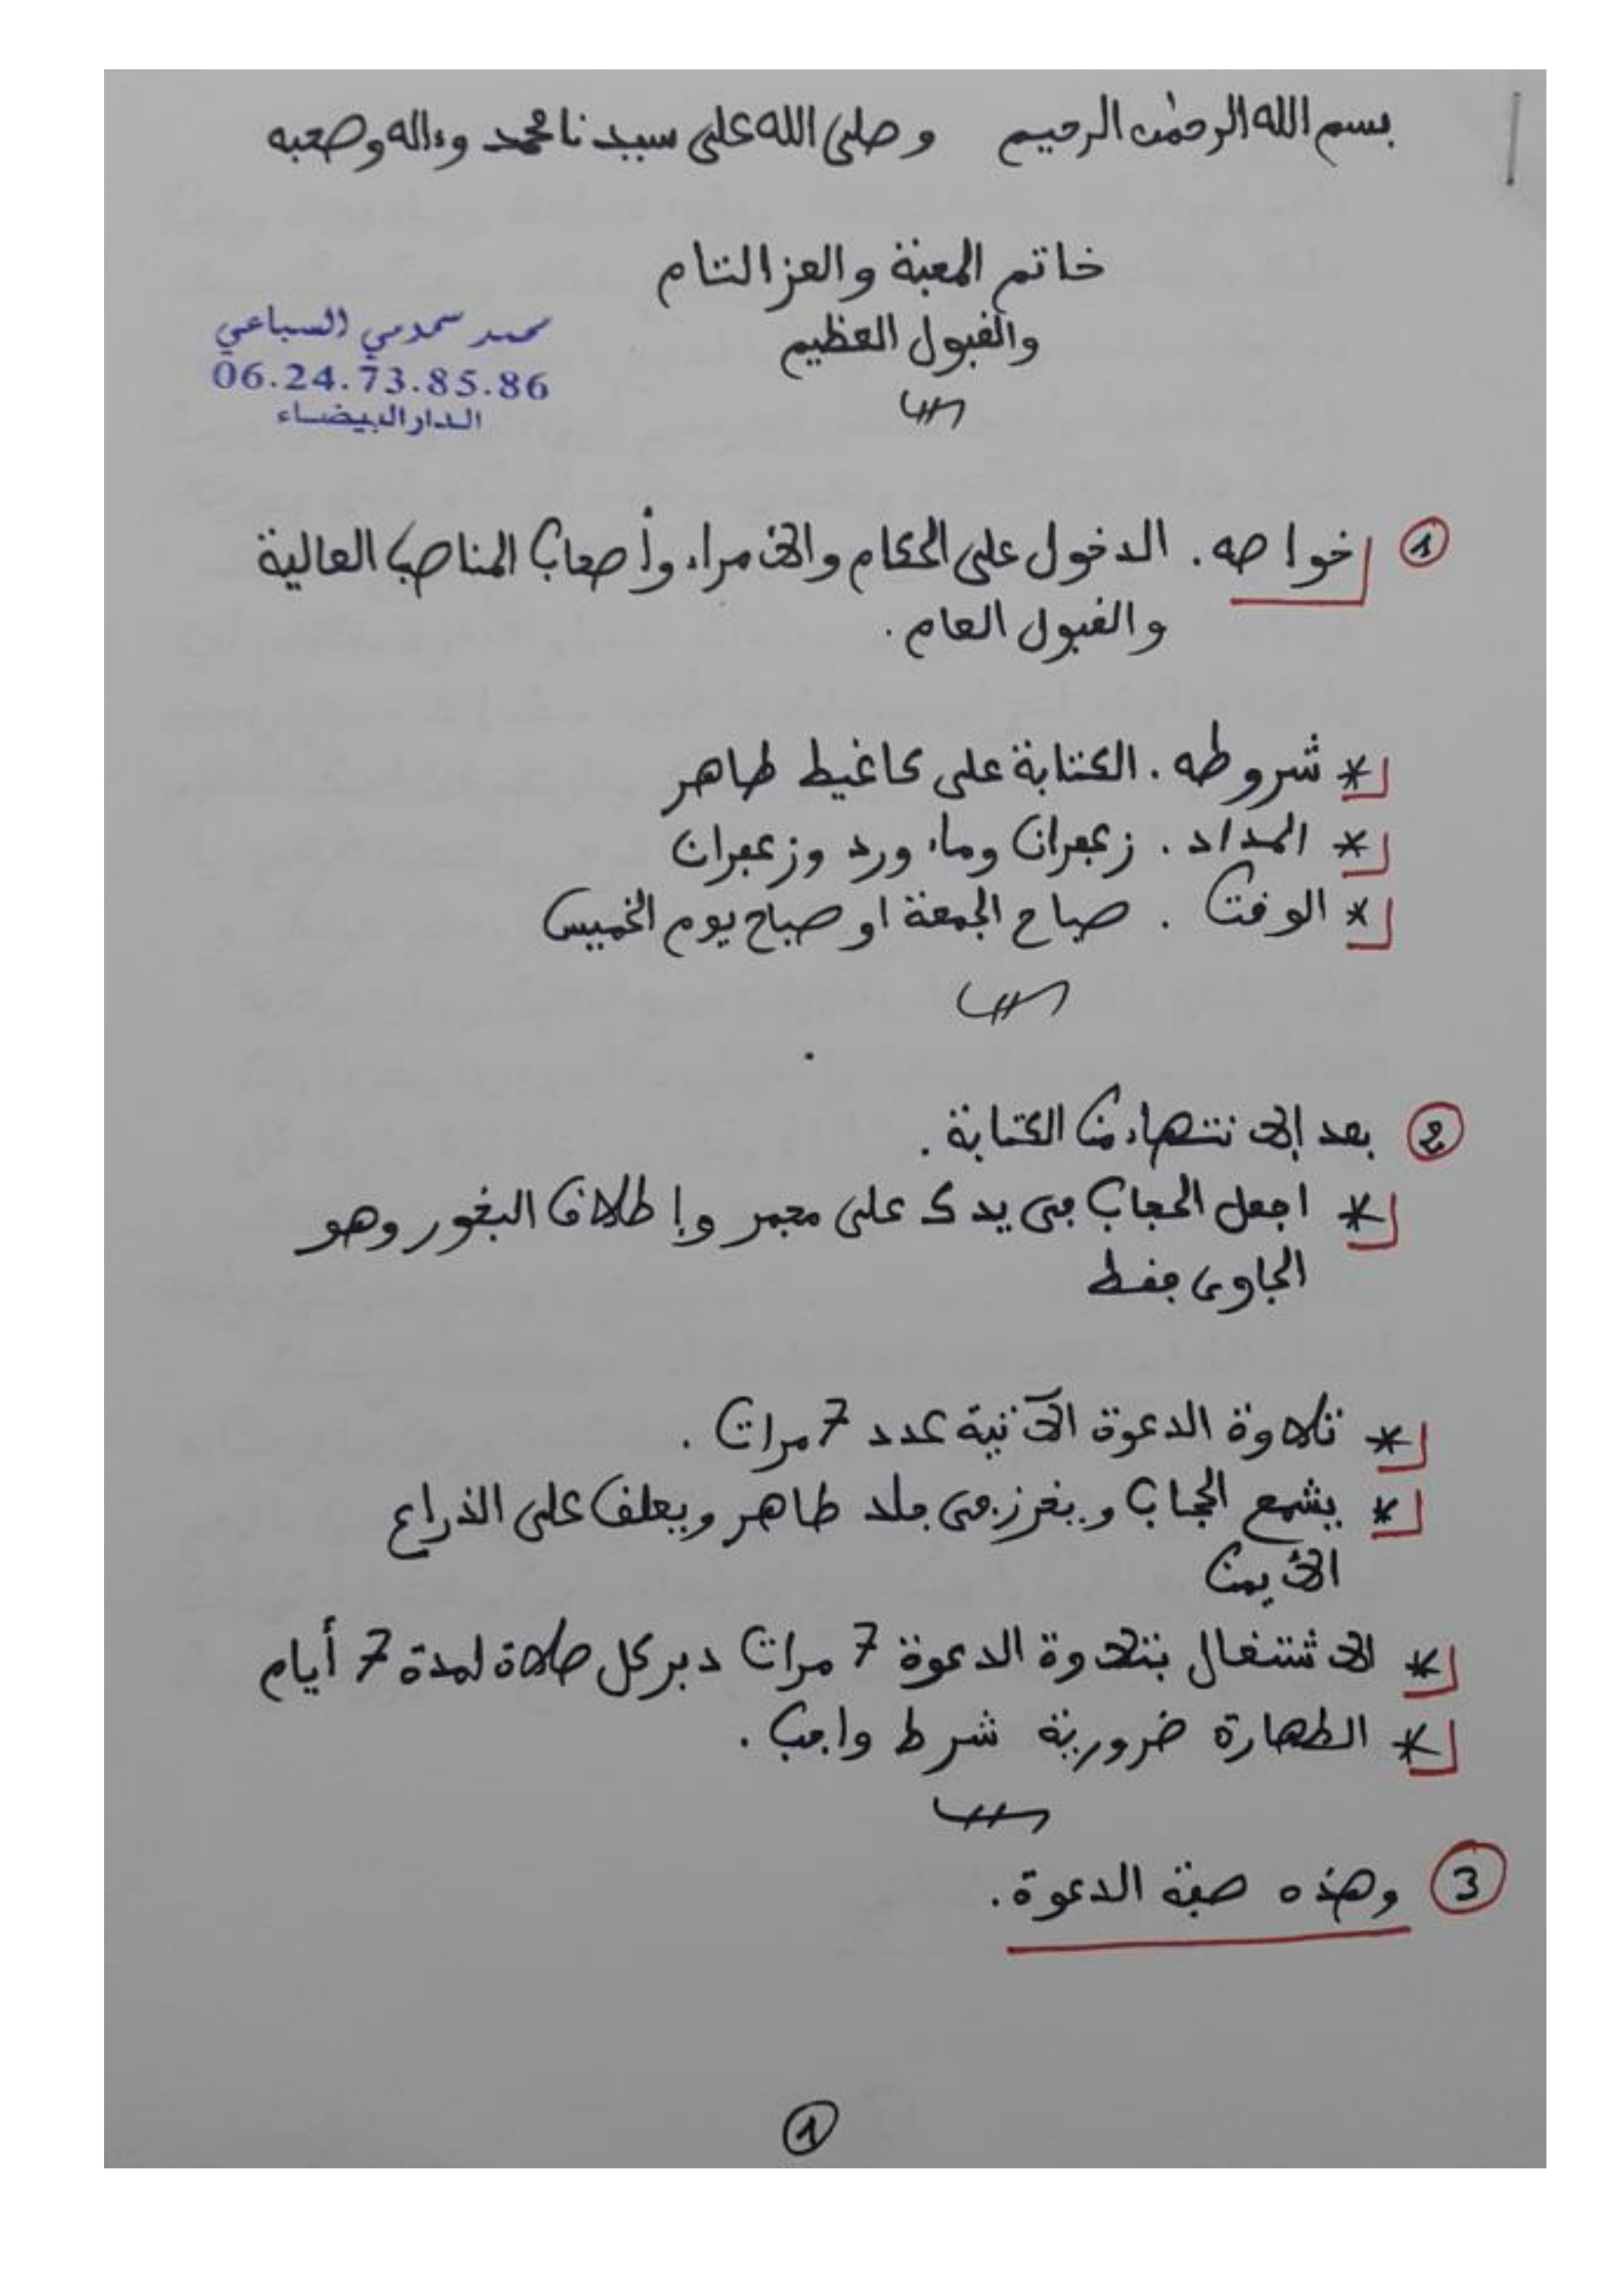 بسم الله الرحمٰن الرحيم وصلى الله على سيدنا محمد وءاله وصحبه
خاتم المحبة والعز التام
والقبول العظيم
محمد السباعي
06.24.73.85.86
الدار البيضاء
1 خواصه. الدخول على الحكام والأمراء وأصحاب المناصب العالية
والقبول العام.
* شروطه. الكتابة على كاغيط طاهر
* المداد. زعفران وماء ورد وزعفران
* الوقت. صباح الجمعة او صباح يوم الخميس
2 بعد الإنتهاء من الكتابة.
* اجعل الحجاب في يدك على مجمر وإطلاق البخور وهو
الجاوي فقط
* تلاوة الدعوة الآتية عدد 7 مرات.
* يشمع الحجاب ويخرز في جلد طاهر ويعلق على الذراع
الأيمن
* الاشتغال بتلاوة الدعوة 7 مرات دبر كل صلاة لمدة 7 أيام
* الطهارة ضرورية شرط واجب.
3 وهذه صفة الدعوة.
1